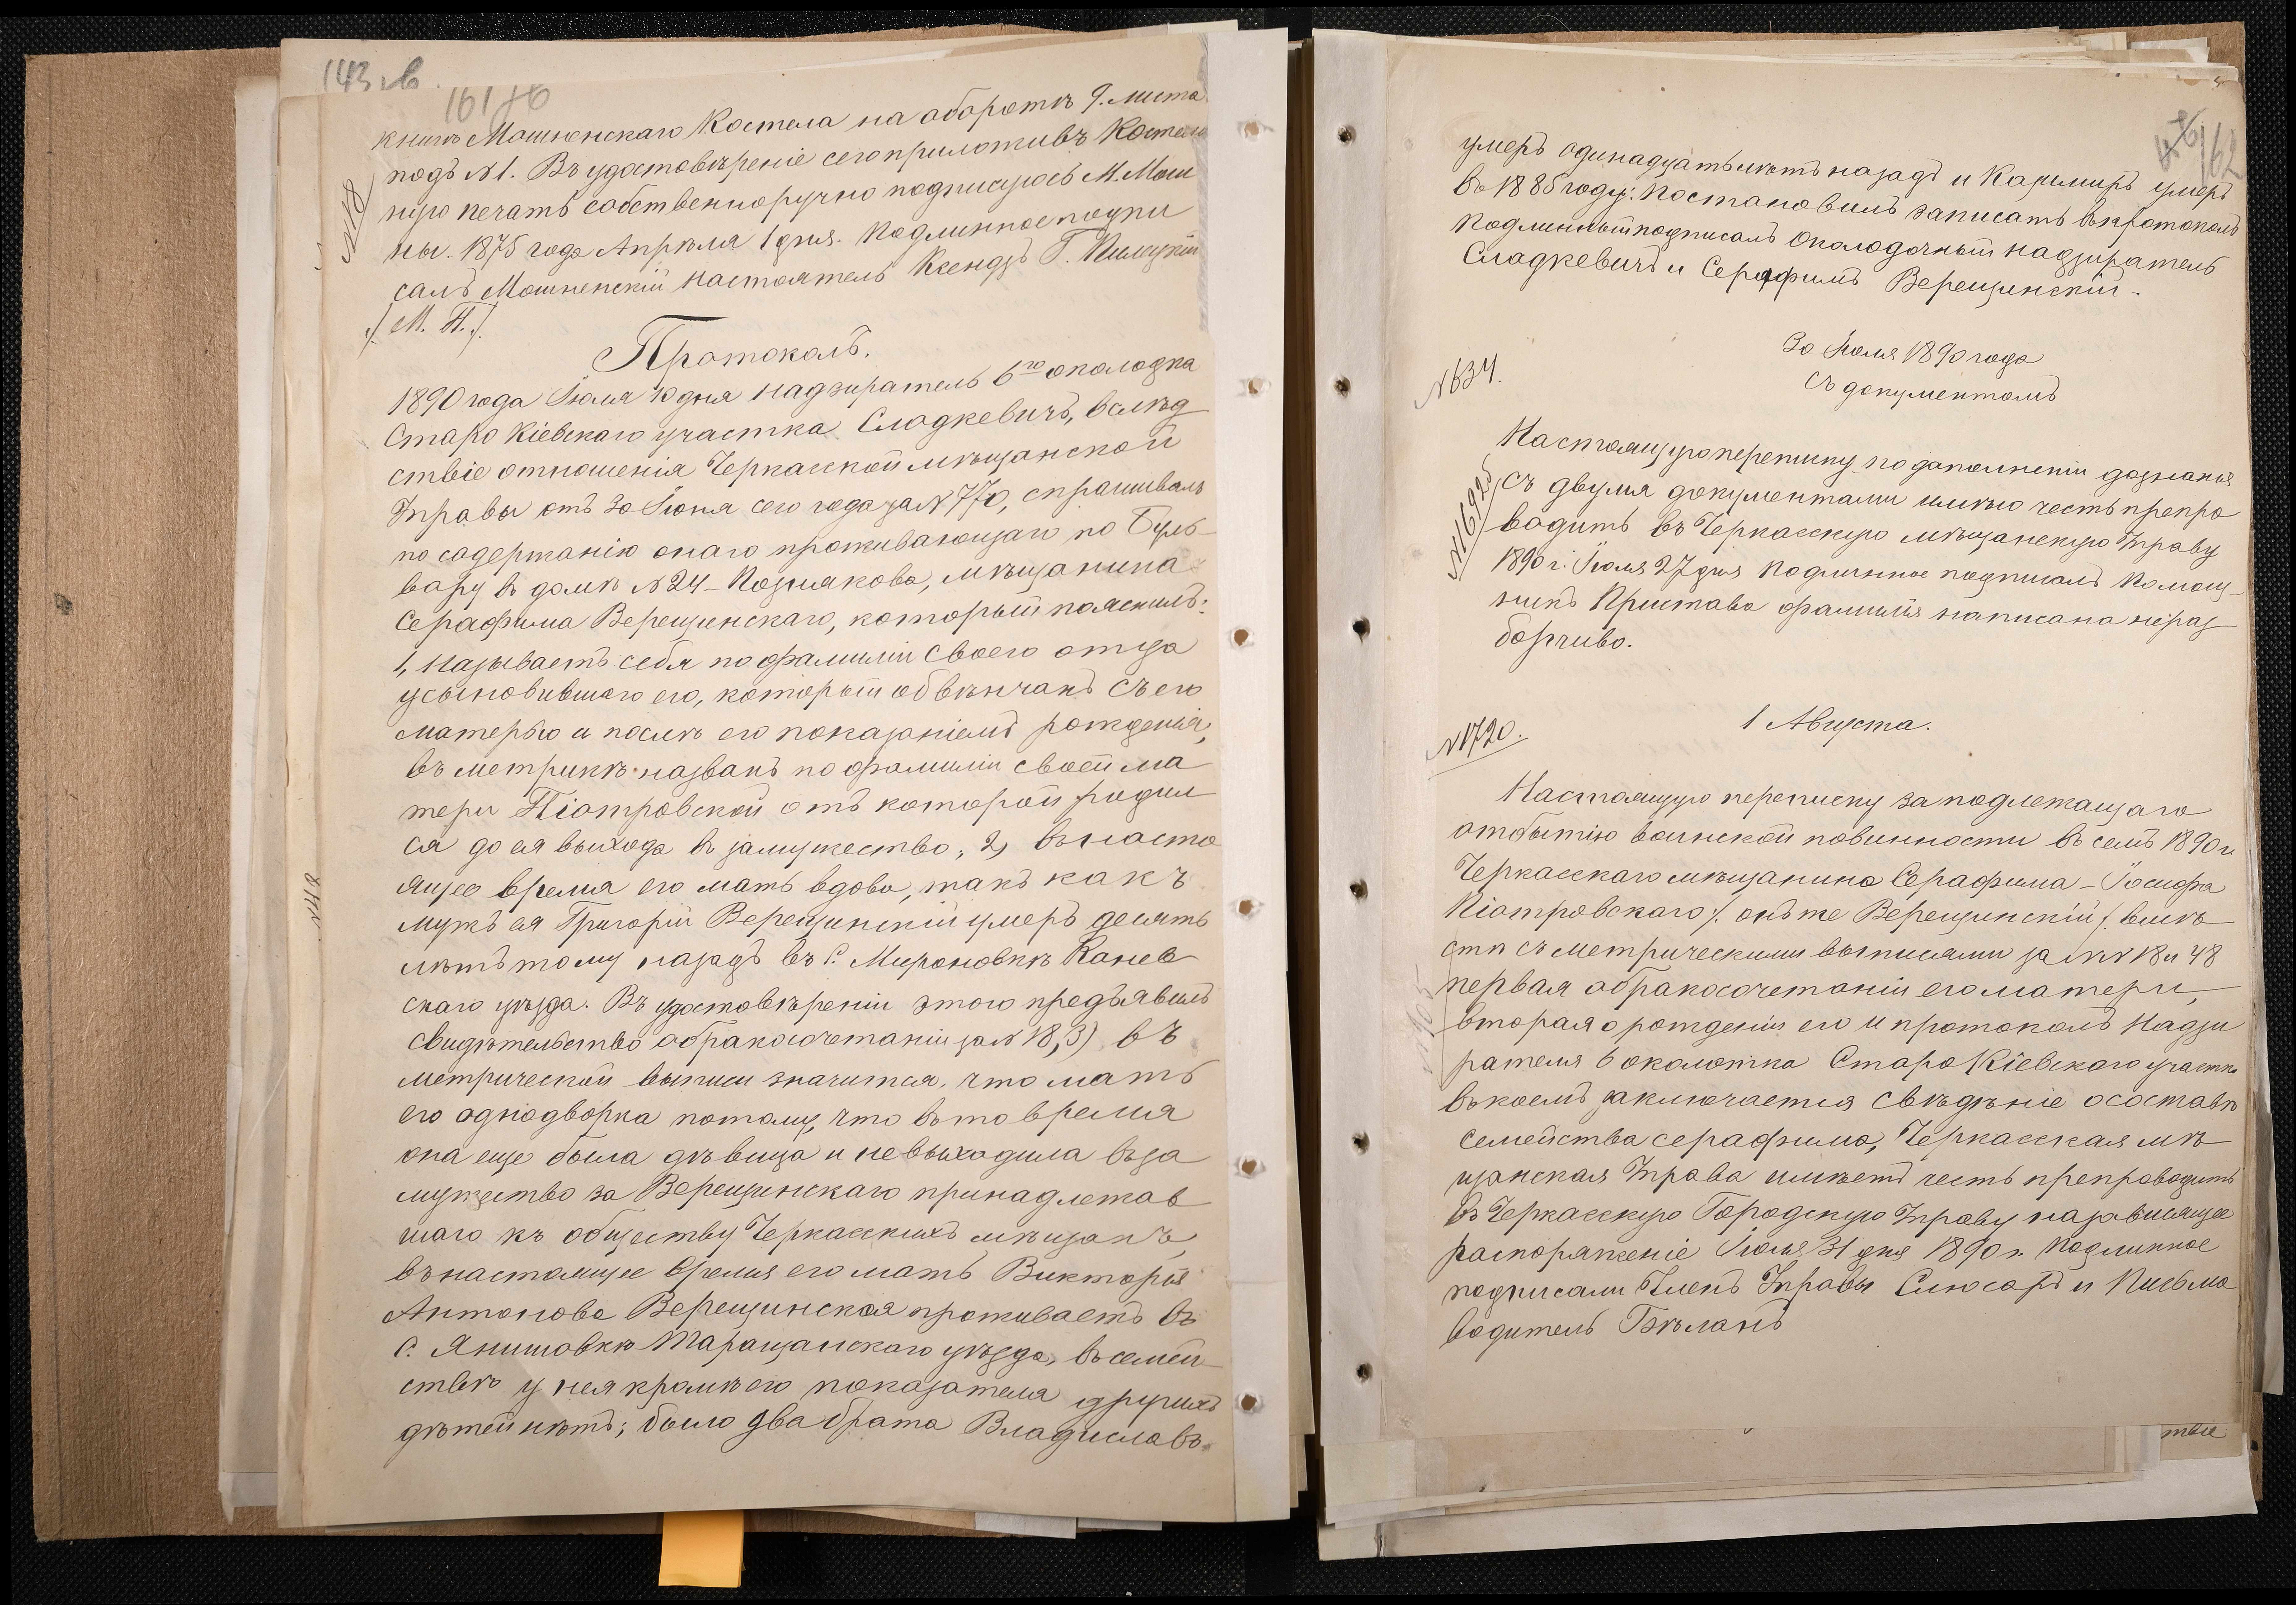 143 об
161 76
книгъ Мошненскаго Костела на оборотѣ 9. листа
подъ №1. Въ удостовѣреніе сего приложивъ Костель
ную печать собственноручно подписуюсь М. Мош
ны. 1875 года Апрѣля 1 дня. Подлинное подпи
салъ Мошненскій настоятель Ксендзъ Г.
/М. П./
№18
Протоколъ.
1890 года Іюля 10 дня надзиратель 6го околодка
Старо Кіевскаго участка Сладкевичъ, вслѣд
ствіе отношенія Черкасской мѣщанской
Управы отъ 30 Іюня сего года за №770, спрашивалъ
по содержанію онаго проживающаго по Буль-
вару въ домѣ №24 - Познякова, мѣщанина
Серафима Верещинскаго, который пояснилъ:
1, Называетъ себя по фамиліи своего отца
усыновившаго его, который обвѣнчанъ съ его
матерью и послѣ его показаніемъ рожденія,
въ метрикѣ названъ по фамиліи своей ма
тери Піотровской отъ которой родил
ся до ея выхода въ замужество, 2) въ насто
ящее время его мать вдова, такъ какъ
мужъ ея Григорій Верещинскій умеръ десять
лѣтъ тому назадъ въ С. Мироновкѣ Канев
скаго уѣзда. Въ удостовѣреніи этого предъявилъ
свидѣтельство о бракосочетаніи за №18, 3) въ
метрической выписи значится, что мать
его однодворка потому, что въ то время
она еще была дѣвица и не выходила въ за
мужество за Верещинскаго принадлежав
шаго къ обществу Черкасскихъ мѣщанъ,
въ настоящее время его мать Викторія
Антонова Верещинская проживаетъ въ
С. Янишовкѣ Таращанскаго уѣзда, въ семей-
ствѣ у нея кромѣ его показателя другихъ
дѣтей нѣтъ; было два брата Владиславъ
№48
46
162
умеръ одинадцать лѣтъ назадъ и Казимиръ умеръ
въ 1885 году: Постановилъ записать въ протоколъ
Подлинный подписалъ Околодочный надзиратель
Сладкевичъ и Серафимъ Верещинскій.
№634.
30 Іюля 1890 года
Съ документомъ
Настоящую переписку по дополненіи дознанія
съ двумя документами имѣю честь препро
водить въ Черкасскую мѣщанскую Управу
1890 г. Іюля 27 дня Подлинное подписалъ Помощ-
никъ Пристава фамилія написана нераз
борчиво.
№16925
№1720.
1 Августа.
Настоящую переписку за подлежащаго
отбытію воинской повинности въ семъ 1890 г.
Черкасскаго мѣщанина Серафима-Іосифа
Піотровскаго /. онъ же Верещинскій /. вмѣ
стѣ съ метрическими выписями за №№ 18 и 48
первая о бракосочетаніи его матери,
вторая о рожденіи его и протоколъ Надзи
рателя 6 околотка Старо Кіевскаго участка
въ коемъ заключается свѣдѣніе о составѣ
семейства серафима, Черкасская мѣ
щанская Управа имѣетъ честь препроводить
въ Черкасскую Городскую Управу на зависящее
распоряженіе Іюля 31 дня 1890 г. Подлинное
подписали Членъ Управы Слюсаръ и Письмо
водитель Бѣланъ
твіе